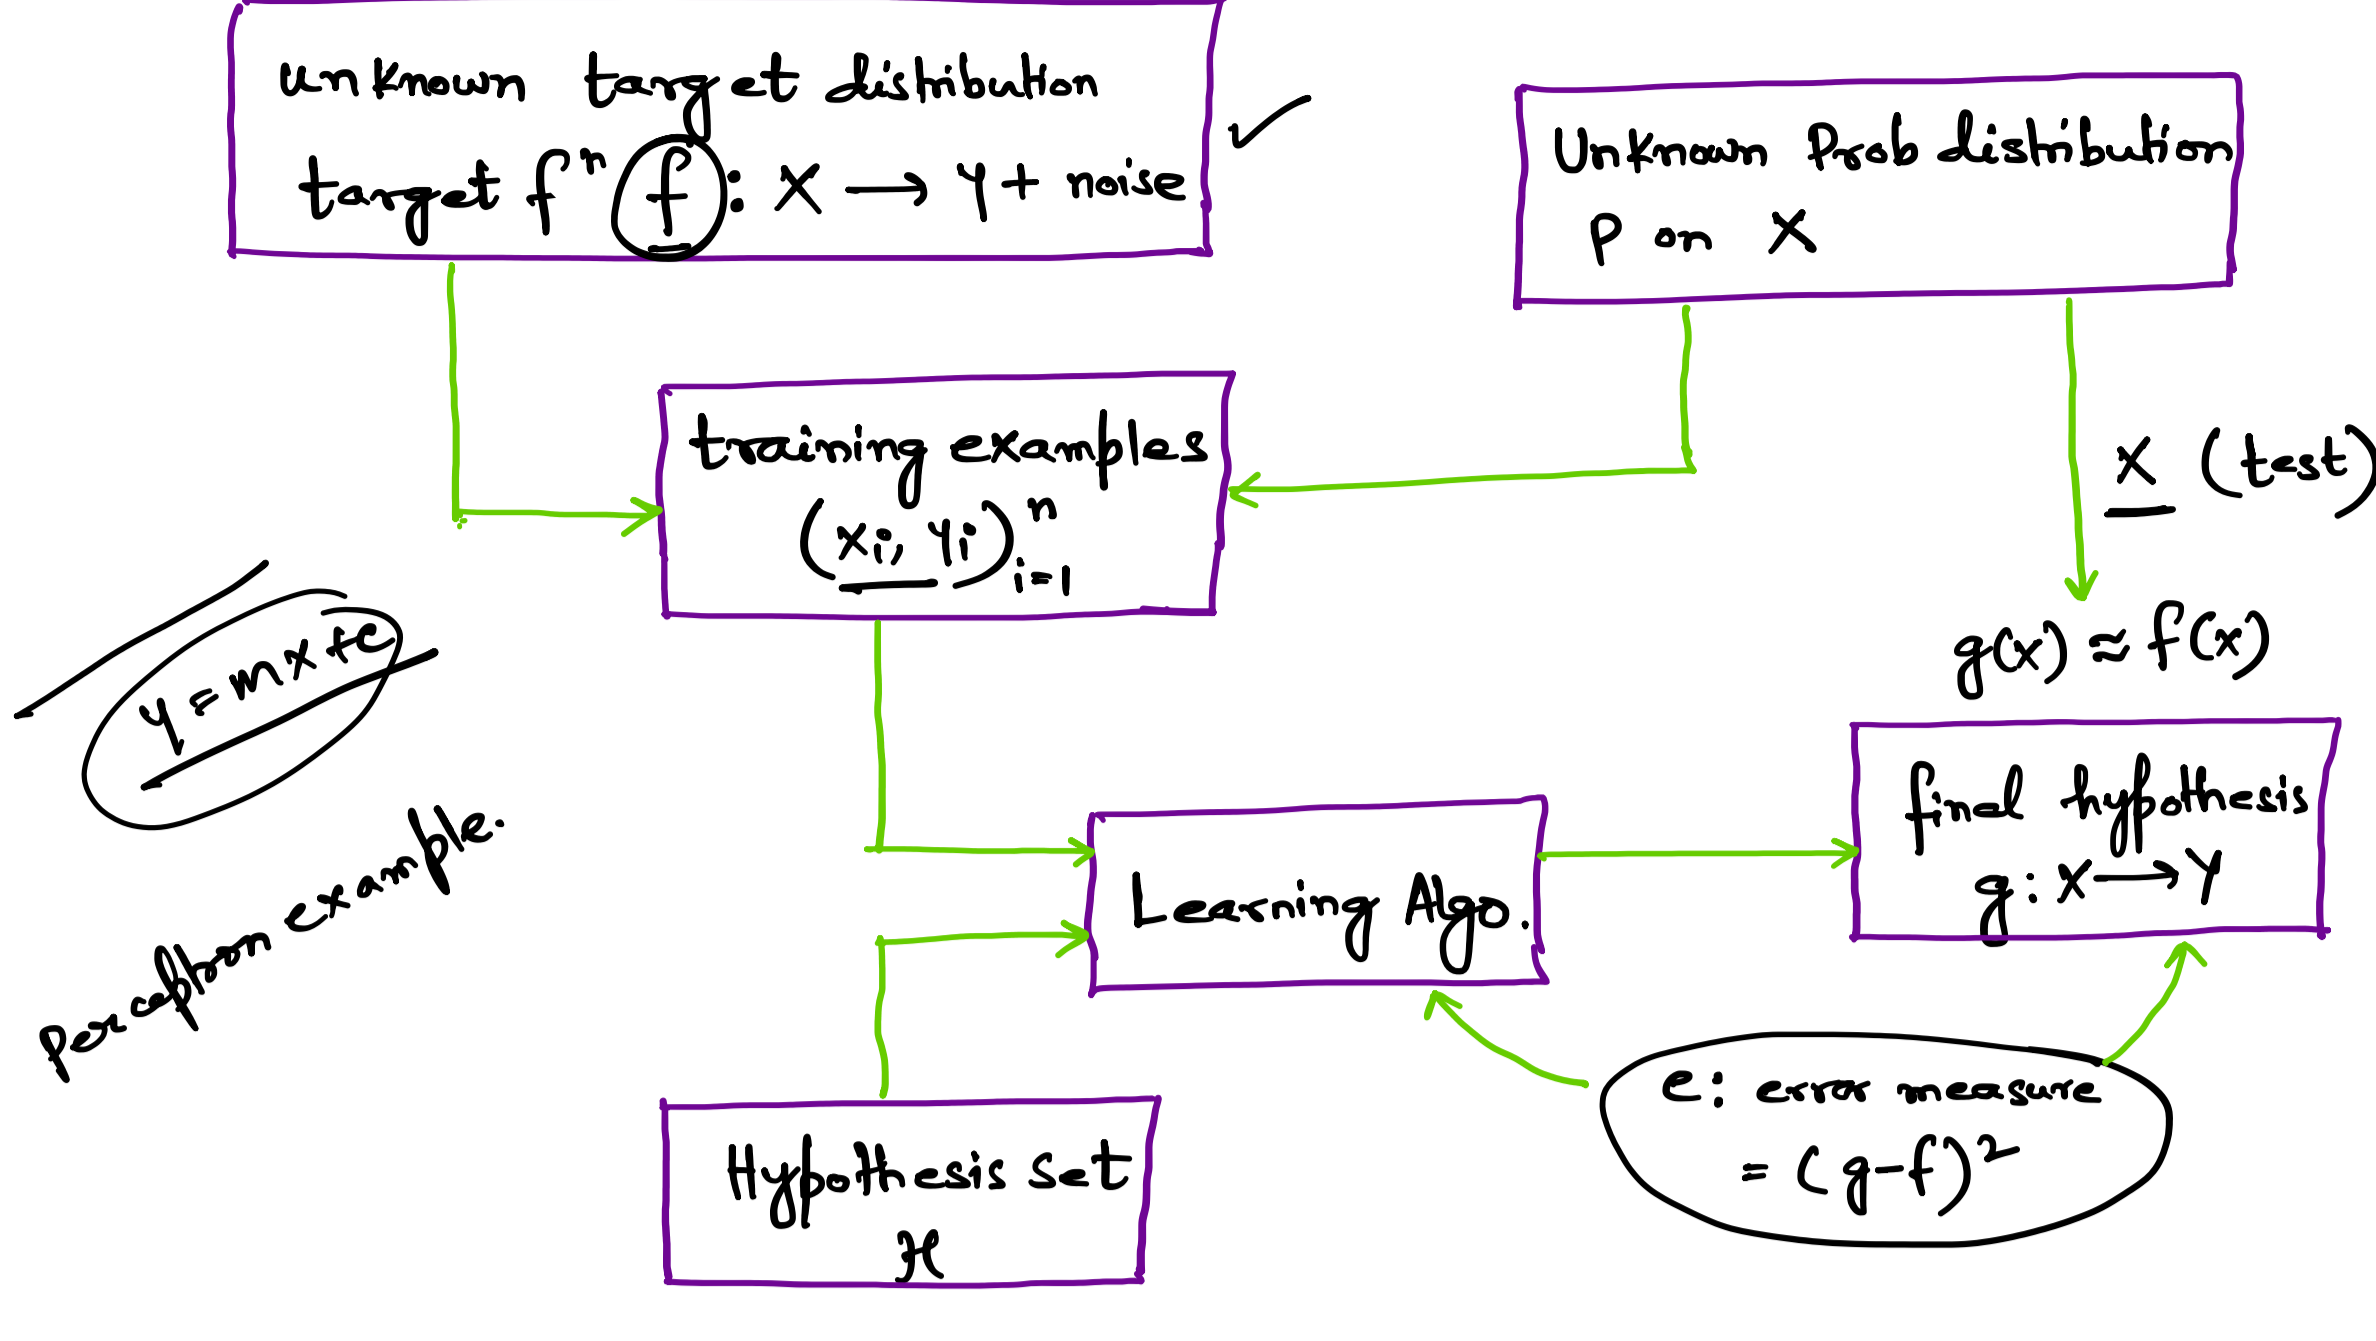 unknown target distribution
target fⁿ f : X → Y + noise
Unknown Prob distribution
P on X
training examples
(xi, yi)ⁿ i=1
x (test)
g(x) ≈ f(x)
y = mx + c
perceptron example.
Learning Algo.
final hypothesis
g : X → Y
e : error measure
= (g-f)²
Hypothesis set
H